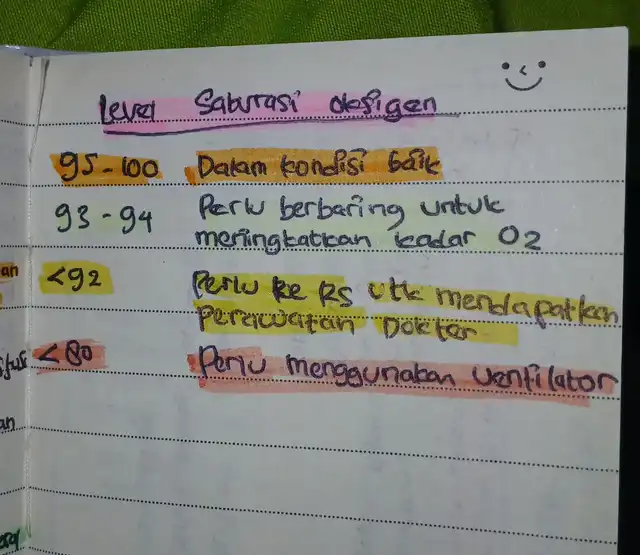 Level Saturasi oksigen
95-100 Dalam kondisi baik
93-94 Perlu berbaring untuk
meningkatkan kadar O2
<92 Perlu ke RS utk mendapatkan
Perawatan Dokter
<80 Perlu menggunakan Ventilator
an
an